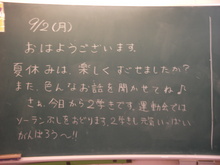 9/2(月)
おはようございます。
夏休みは、楽しくすごせましたか?
また、色んなお話を聞かせてね♪
さぁ、今日から2学きです。運動会では
ソーランぶしをおどります。2学きも元気いっぱい
がんばろう〜!!